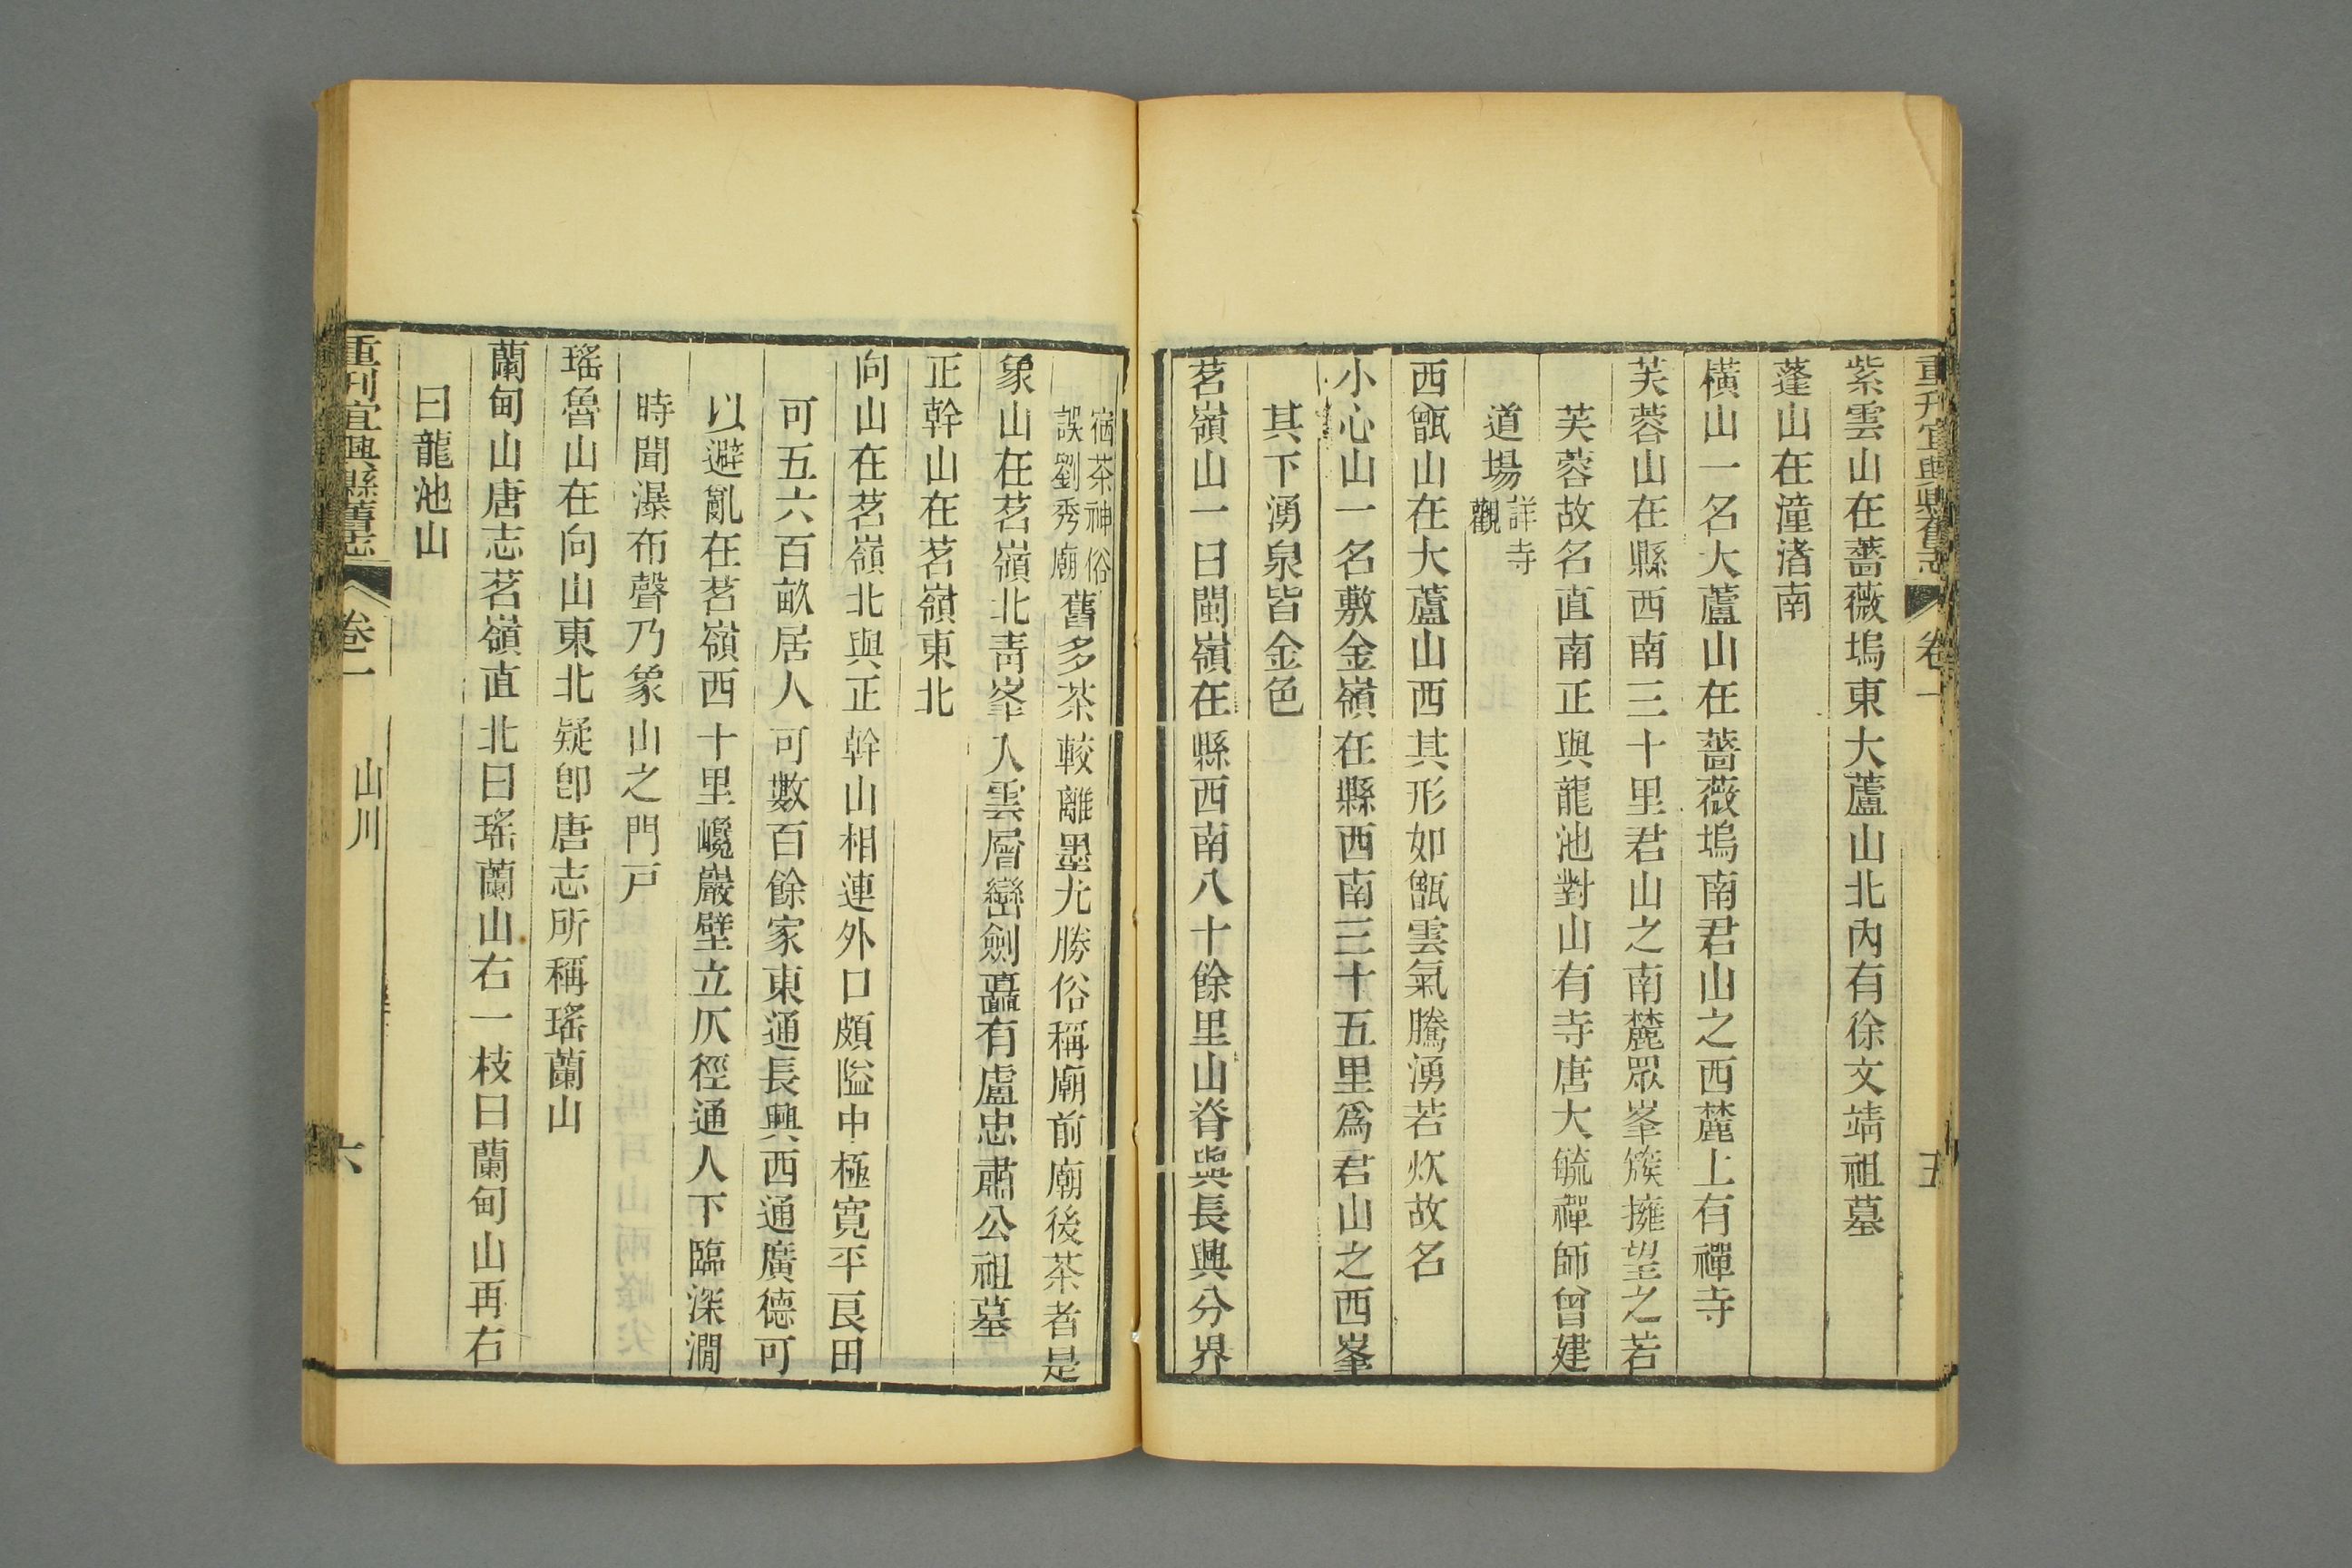 重刊宜興縣舊志 卷一 五
紫雲山在薔薇塢東大蘆山北內有徐文靖祖墓
蓬山在潼渚南
橫山一名大蘆山在薔薇塢南君山之西麓上有禪寺
芙蓉山在縣西南三十里君山之南麓眾峯簇擁望之若
芙蓉故名直南正與龍池對山有寺唐大毓禪師曾建
道場詳寺觀
西甑山在大蘆山西其形如甑雲氣騰湧若炊故名
小心山一名敷金嶺在縣西南三十五里爲君山之西峯
其下湧泉皆金色
茗嶺山一曰閩嶺在縣西南八十餘里山脊與長興分界
茶神俗誤劉秀廟舊多茶較離墨尤勝俗稱廟前廟後茶者是
象山在茗嶺北靑峯入雲層巒劍矗有盧忠肅公祖墓
正幹山在茗嶺東北
向山在茗嶺北與正幹山相連外口頗隘中極寬平良田
可五六百畝居人可數百餘家東通長興西通廣德可
以避亂在茗嶺西十里巉巖壁立仄徑通人下臨深澗
時聞瀑布聲乃象山之門戸
瑤魯山在向山東北疑卽唐志所稱瑤蘭山
蘭甸山唐志茗嶺直北曰瑤蘭山右一枝曰蘭甸山再右
曰龍池山
重刊宜興縣舊志 卷一 山川 六